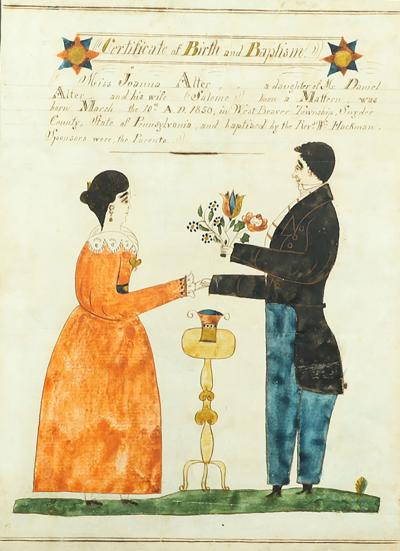 Certificate of Birth and Baptism.
Miss Joanna Alter a daughter of Mr. Daniel
Alter and his wife Salome born a Mattern, was
born March the 10th A.D. 1850, in West Beaver Township, Snyder
County, State of Pennsylvania, and baptized by the Revd Wm Hackman.
Sponsors were, the Parents.